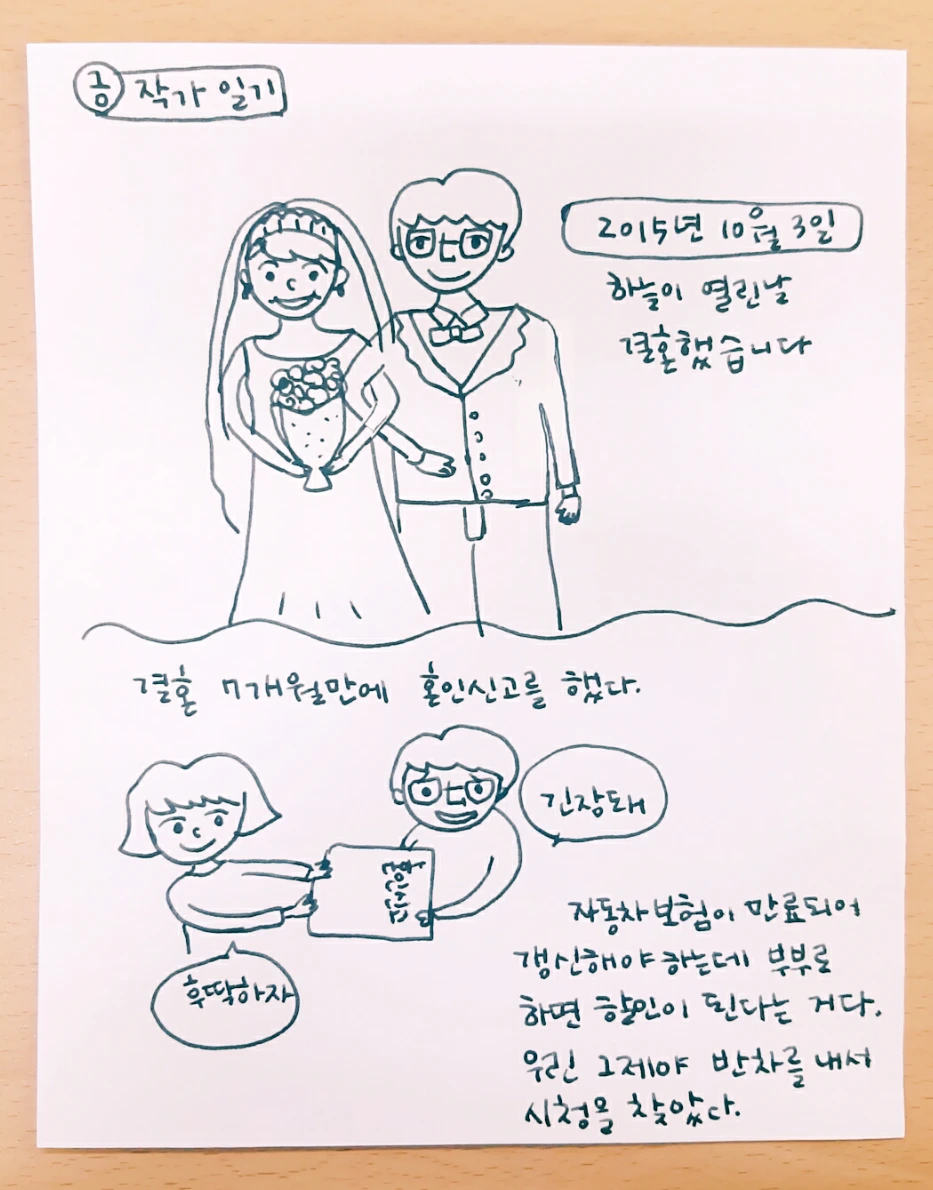 금 작가 일기
2015년 10월 3일
하늘이 열린날
결혼했습니다
결혼 7개월만에 혼인신고를 했다.
긴장돼
후딱하자
자동차보험이 만료되어
갱신해야 하는데 부부로
하면 할인이 된다는 거다.
우린 그제야 반차를 내서
시청을 찾았다.